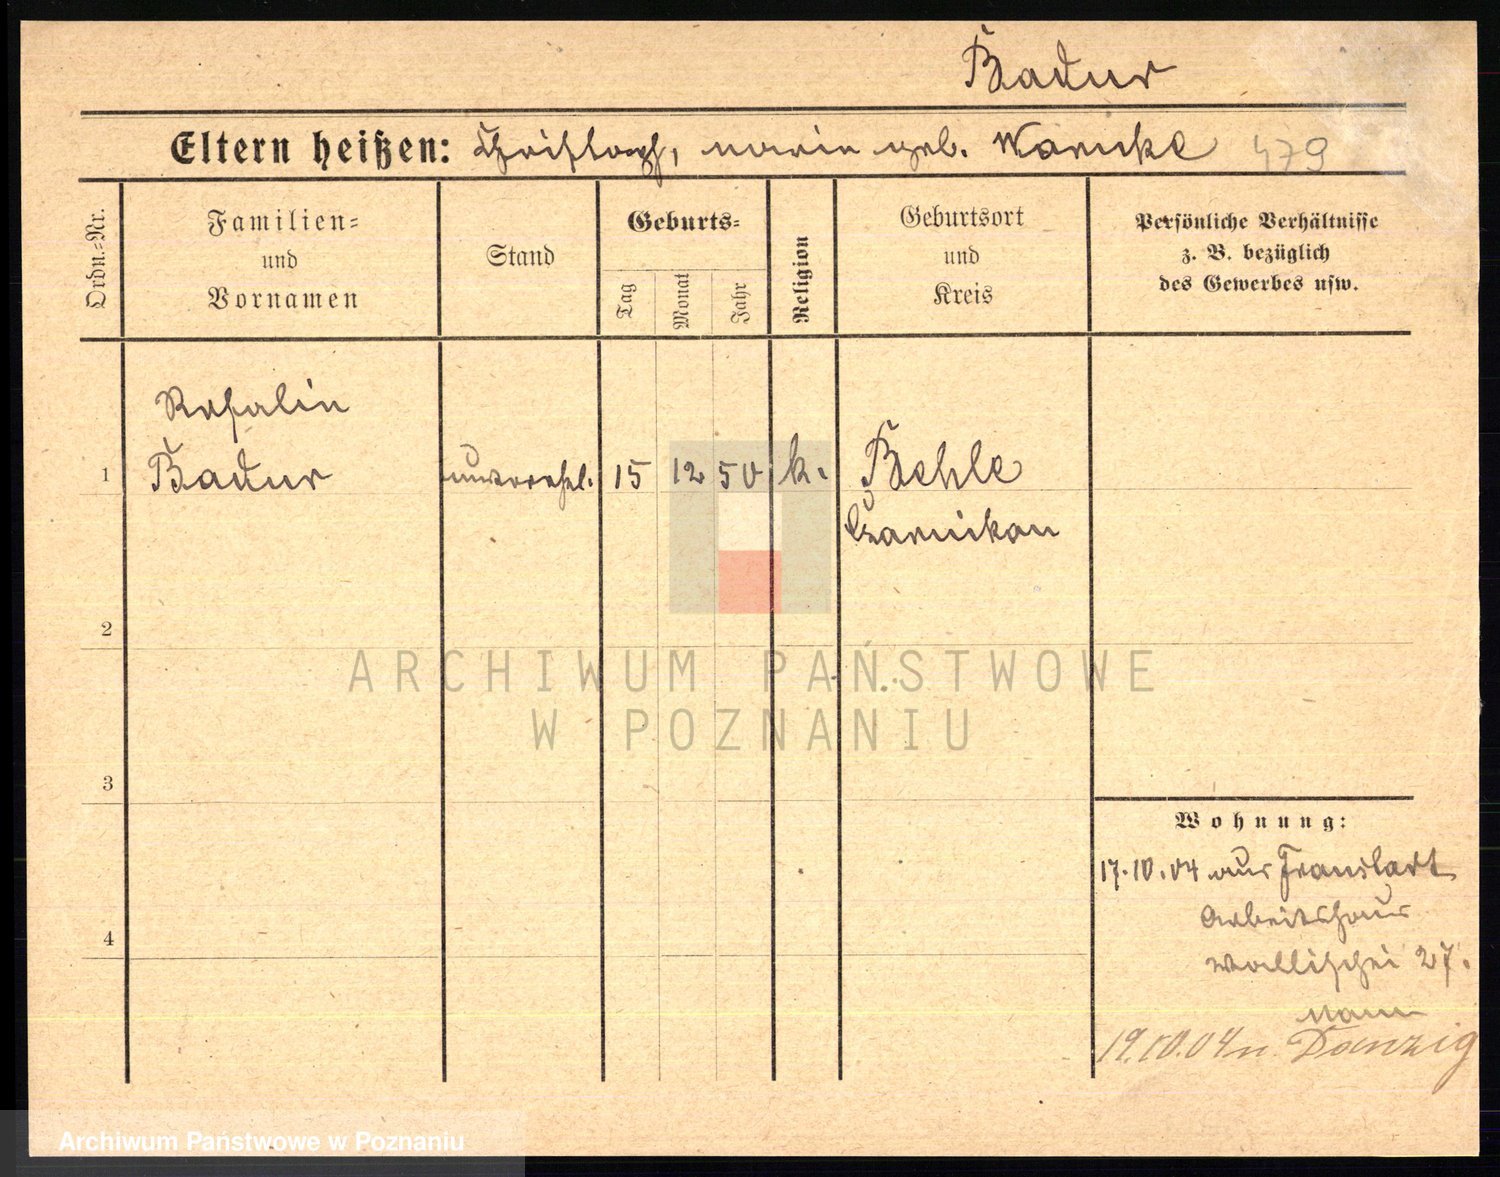 Badur
Eltern heißen: Christoph, Marie geb. Warnke 479
Ordn.=Nr.
Familien=
und
Vornamen
Stand
Geburts=
Tag
Monat
Jahr
Religion
Geburtsort
und
Kreis
Persönliche Verhältnisse
z. B. bezüglich
des Gewerbes usw.
Rosalie
1 Badur unverehel. 15 12 50 k. Behle
Czarnikau
2
ARCHIWUM PAŃSTWOWE
W POZNANIU
3
Wohnung:
17.10.04 aus Fraustadt
Arbeitshaus
4
Wallischei 27.
19.10.04 n. Danzig
Archiwum Państwowe w Poznaniu